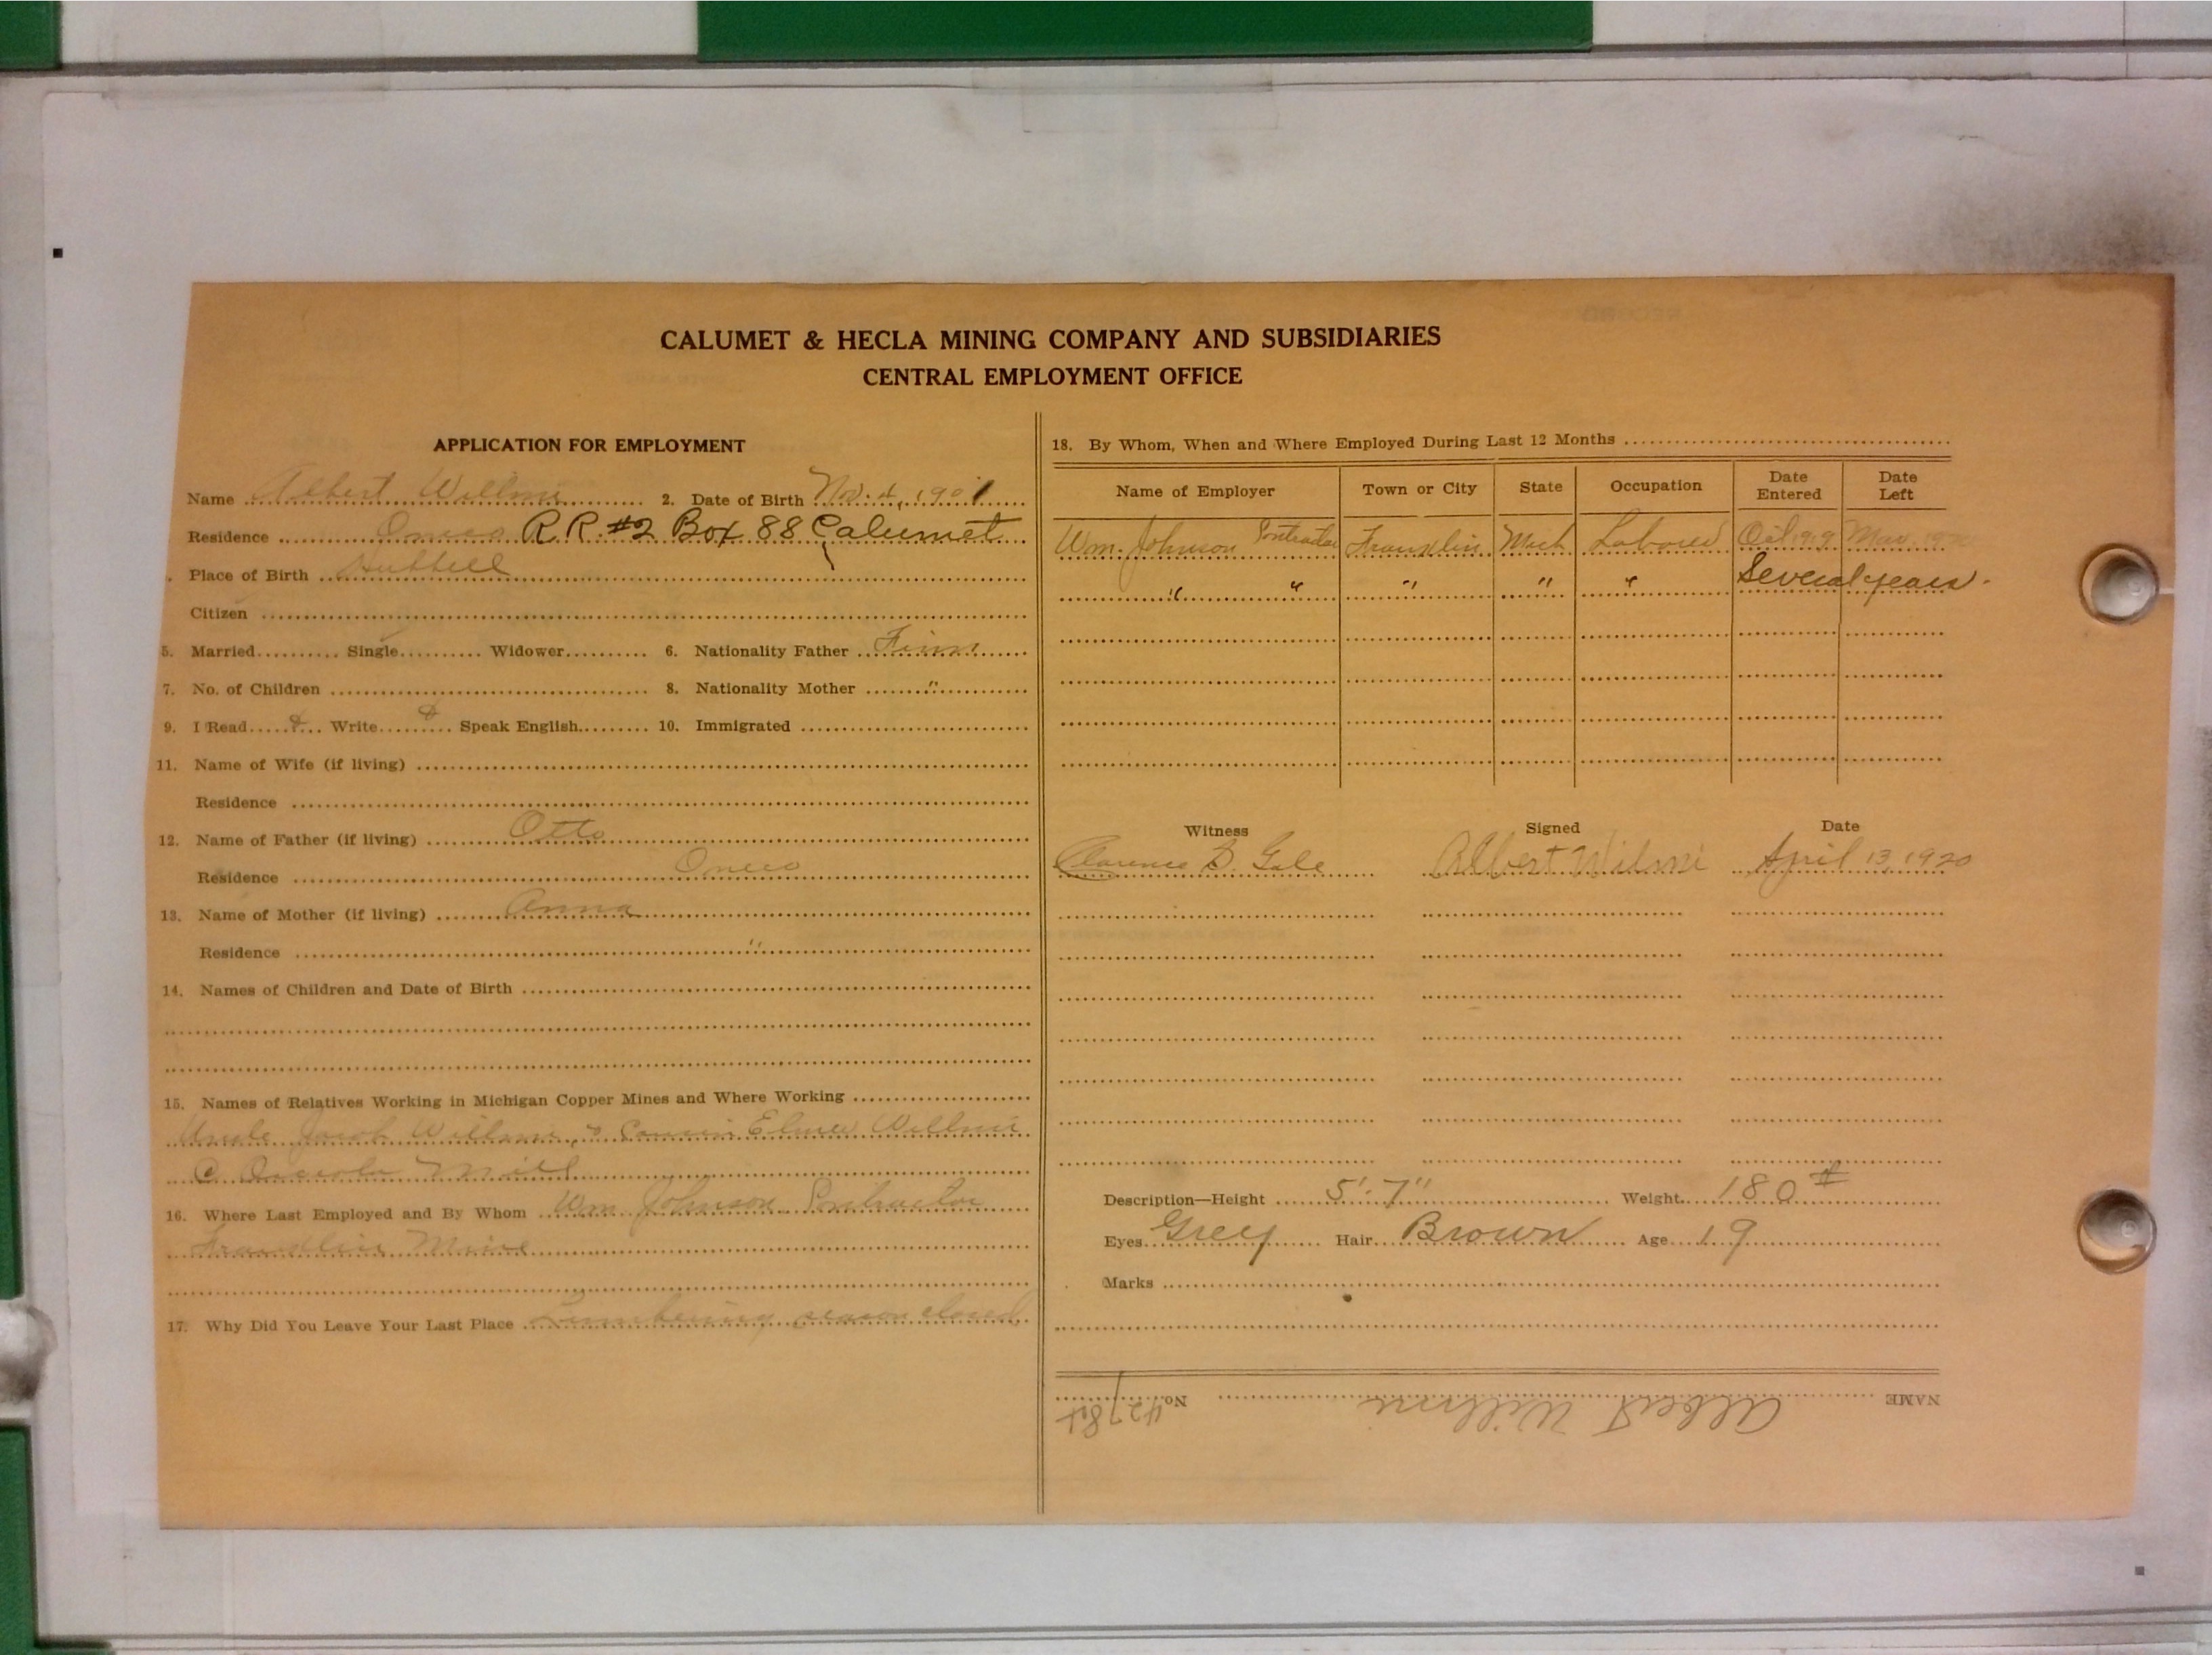 CALUMET & HECLA MINING COMPANY AND SUBSIDIARIES
CENTRAL EMPLOYMENT OFFICE
APPLICATION FOR EMPLOYMENT
Name Albert Willmi 2. Date of Birth Nov. 4, 1901
Residence Oneco R.R. #2 Box 88 Calumet
Place of Birth Hubbell
Citizen
5. Married Single Widower 6. Nationality Father Finn
7. No. of Children 8. Nationality Mother "
9. I Read Write Speak English 10. Immigrated
11. Name of Wife (if living)
Residence
12. Name of Father (if living) Otto
Residence Oneco
13. Name of Mother (if living) Anna
Residence "
14. Names of Children and Date of Birth
15. Names of Relatives Working in Michigan Copper Mines and Where Working
Uncle Jacob Willmi, & Cousin Elmer Willmi
@ Osceola Mill
16. Where Last Employed and By Whom Wm. Johnson Contractor
Franklin Mine
17. Why Did You Leave Your Last Place Lumbering season closed
18. By Whom, When and Where Employed During Last 12 Months
Name of Employer Town or City State Occupation Date Entered Date Left
Wm. Johnson Contractor Franklin Mich Laborer Oct 1919 Mar. 1920
" " " " " Several years.
Witness Signed Date
Clarence B. Gale Albert Wilmi April 13, 1920
Description—Height 5'-7" Weight 180#
Eyes Grey Hair Brown Age 19
Marks
NAME Albert Willmi No.